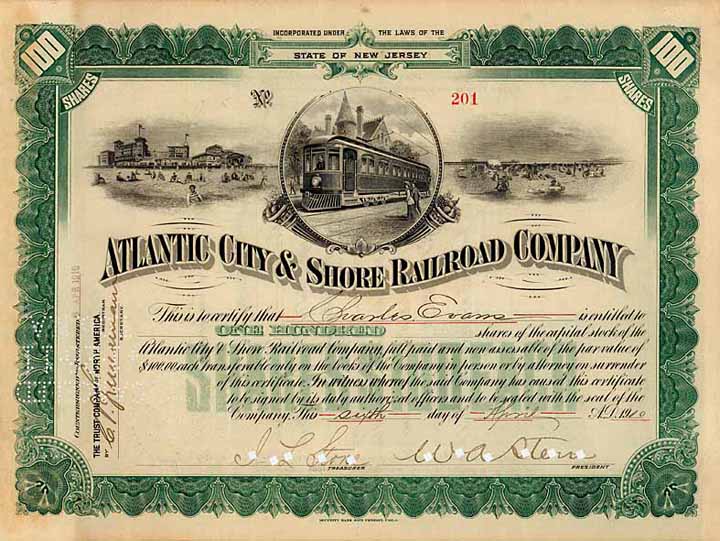 INCORPORATED UNDER THE LAWS OF THE
STATE OF NEW JERSEY
100 SHARES
100 SHARES
No 201
ATLANTIC CITY & SHORE RAILROAD COMPANY
This is to certify that Charles Evans is entitled to
ONE HUNDRED shares of the capital stock of the
Atlantic City & Shore Railroad Company full paid and non assessable of the par value of
$100.00 each transferable only on the books of the Company in person or by attorney on surrender
of this certificate. In witness whereof the said Company has caused this certificate
to be signed by its duly authorized officers and to be sealed with the seal of the
Company. This sixth day of April A.D. 1910
TREASURER
W. A. Stern
PRESIDENT
COUNTERSIGNED AND REGISTERED APR 1910
THE TRUST COMPANY OF NORTH AMERICA
REGISTRAR
BY
100
100
SECURITY BANK NOTE COMPANY, PHILA.